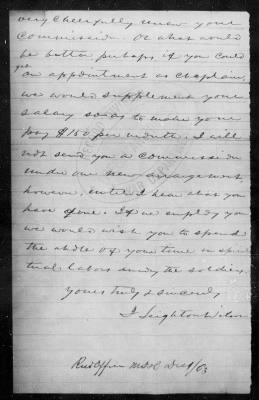 very cheerfully renew your
commission. Or what would
be better perhaps if you could
get
an appointment as Chaplain,
we would supplement your
salary so as to make your
pay $150 per month. I will
not send you a commission
under our new arrangement,
however, until I hear what you
have done. If we employ you
we would wish you to spend
the whole of your time in spiri-
tual labors among the soldiers.
Yours truly & sincerely
J Leighton Wilson